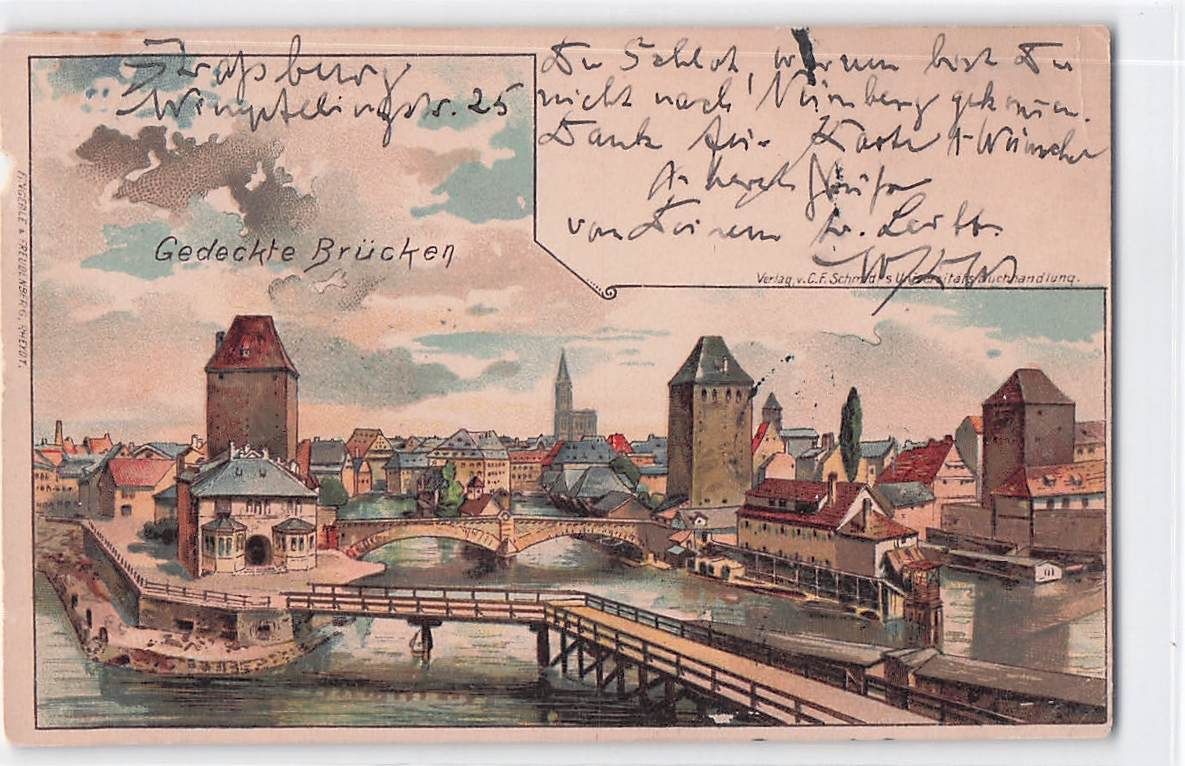 Straßburg
Wimpfelingstr. 25
Du Schlot, warum bist Du
nicht nach Nürnberg gekommen.
Dank für Karte + Wünsche
herzl. Grüße
von Deinem
Gedeckte Brücken
Verlag v. C.F. Schmid's Universitäts Buchhandlung.
FINGERLE & FREUDENBERG, RHEYDT.